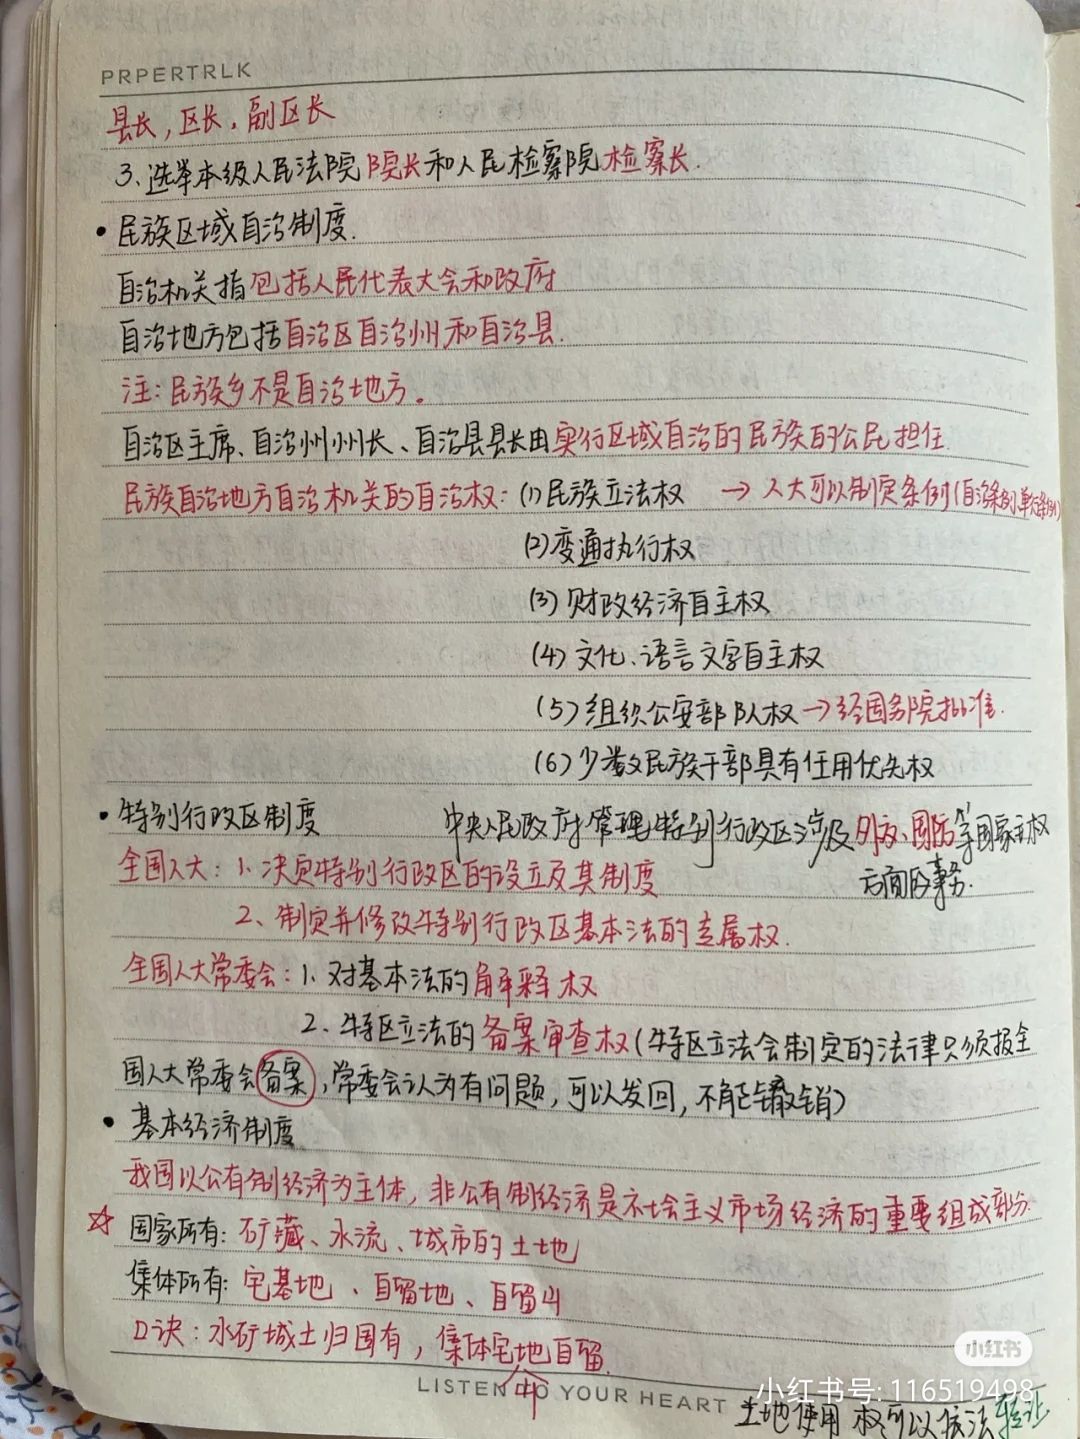 PRPERTRLK
县长，区长，副区长
3、选举本级人民法院院长和人民检察院检察长.
• 民族区域自治制度.
自治机关指包括人民代表大会和政府
自治地方包括自治区自治州和自治县.
注：民族乡不是自治地方。
自治区主席、自治州州长、自治县县长由实行区域自治的民族的公民担任.
民族自治地方自治机关的自治权：(1)民族立法权 → 人大可以制定条例(自治条例、单行条例)
(2)变通执行权
(3)财政经济自主权
(4)文化、语言文字自主权
(5)组织公安部队权→经国务院批准.
(6)少数民族干部具有任用优先权
• 特别行政区制度 中央人民政府管理特别行政区涉及外交、国防等国家主权
方面的事务.
全国人大：1、决定特别行政区的设立及其制度
2、制定并修改特别行政区基本法的专属权.
全国人大常委会：1、对基本法的解释权
2、特区立法的备案审查权(特区立法会制定的法律只须报全
国人大常委会备案，常委会认为有问题，可以发回，不能撤销)
• 基本经济制度
我国以公有制经济为主体，非公有制经济是社会主义市场经济的重要组成部分.
☆ 国家所有：矿藏、水流、城市的土地
集体所有：宅基地、自留地、自留山
口诀：水矿城土归国有，集体宅地自留.
山
LISTEN TO YOUR HEART
土地使用权可以依法转让
小红书
小红书号: 116519498